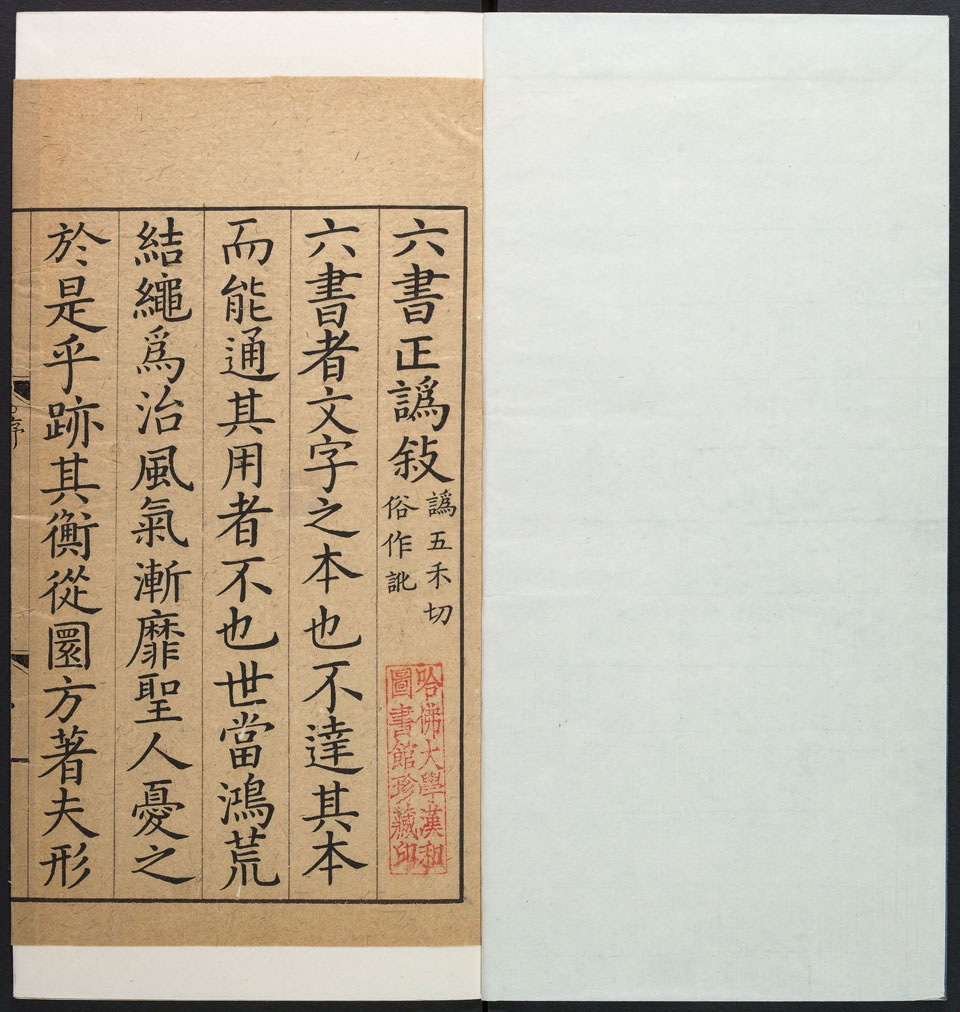 六書正譌敍
譌五禾切
俗作訛
哈佛大學漢和
圖書館珍藏印
六書者文字之本也不達其本
而能通其用者不也世當鴻荒
結繩爲治風氣漸靡聖人憂之
於是乎跡其衡從圜方著夫形
序